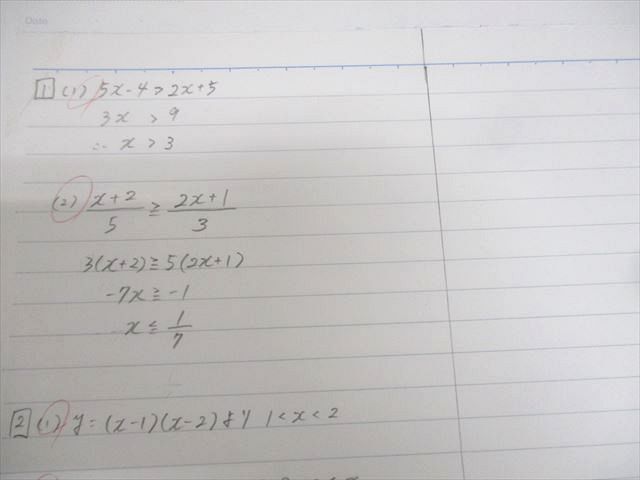 Date
1 (1) 5x-4>2x+5
3x > 9
∴ x > 3
(2) (x+2)/5 ≧ (2x+1)/3
3(x+2)≧5(2x+1)
-7x≧-1
x≦1/7
2 (1) y=(x-1)(x-2)より 1<x<2